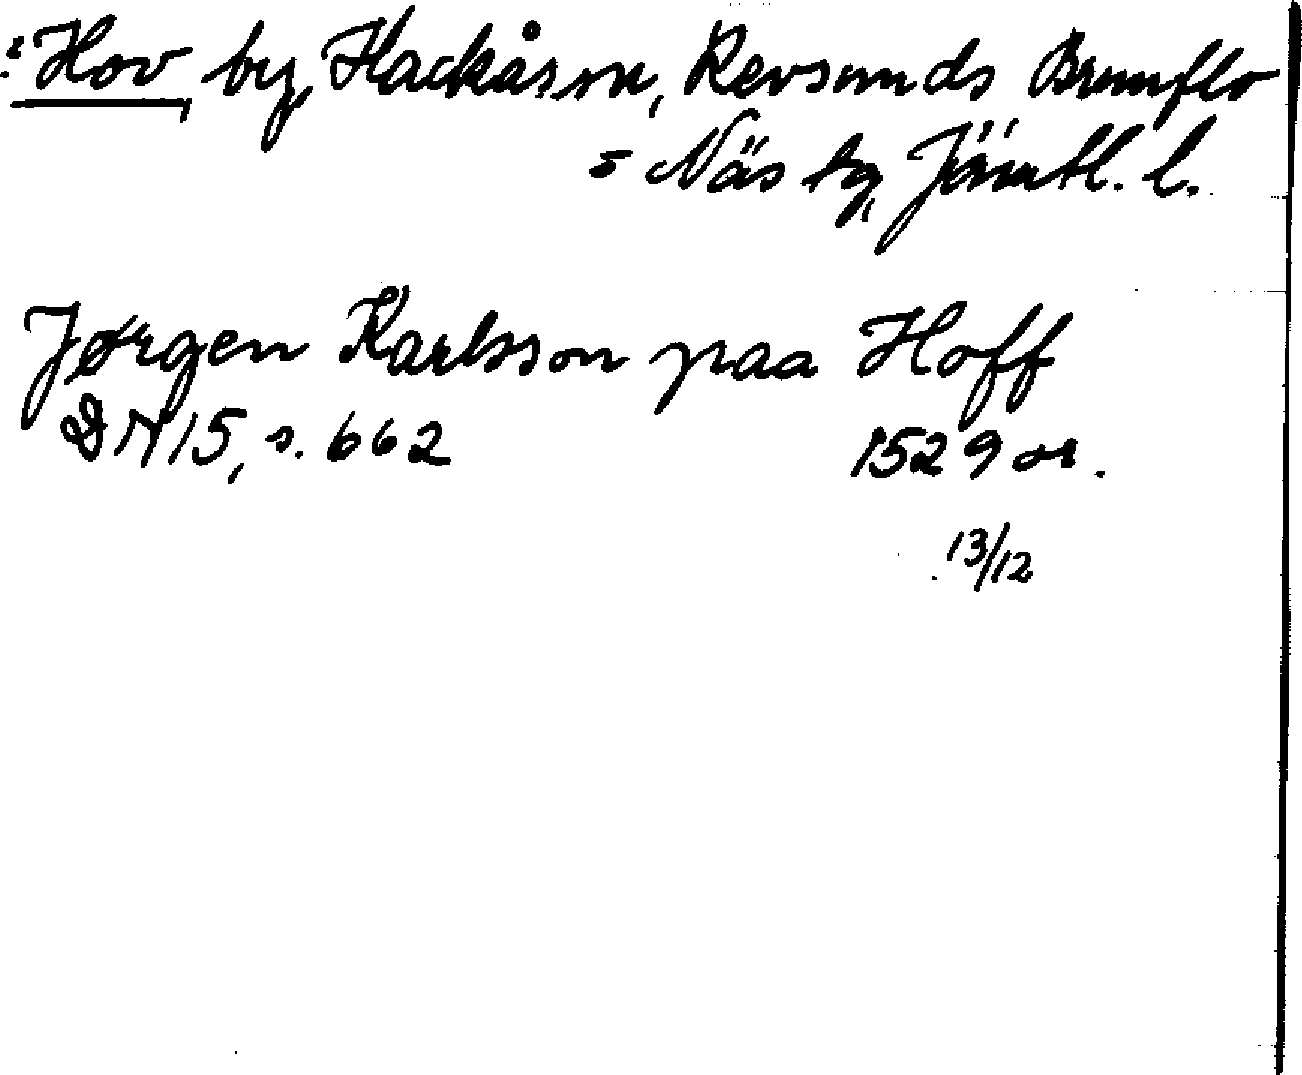 : Hov, by, Hackås sn, Revsunds Brunflo
= Näs tg, Jämtl. l.
Jørgen Karlsson paa Hoff
DN 15, s. 662 1529 or.
13/12